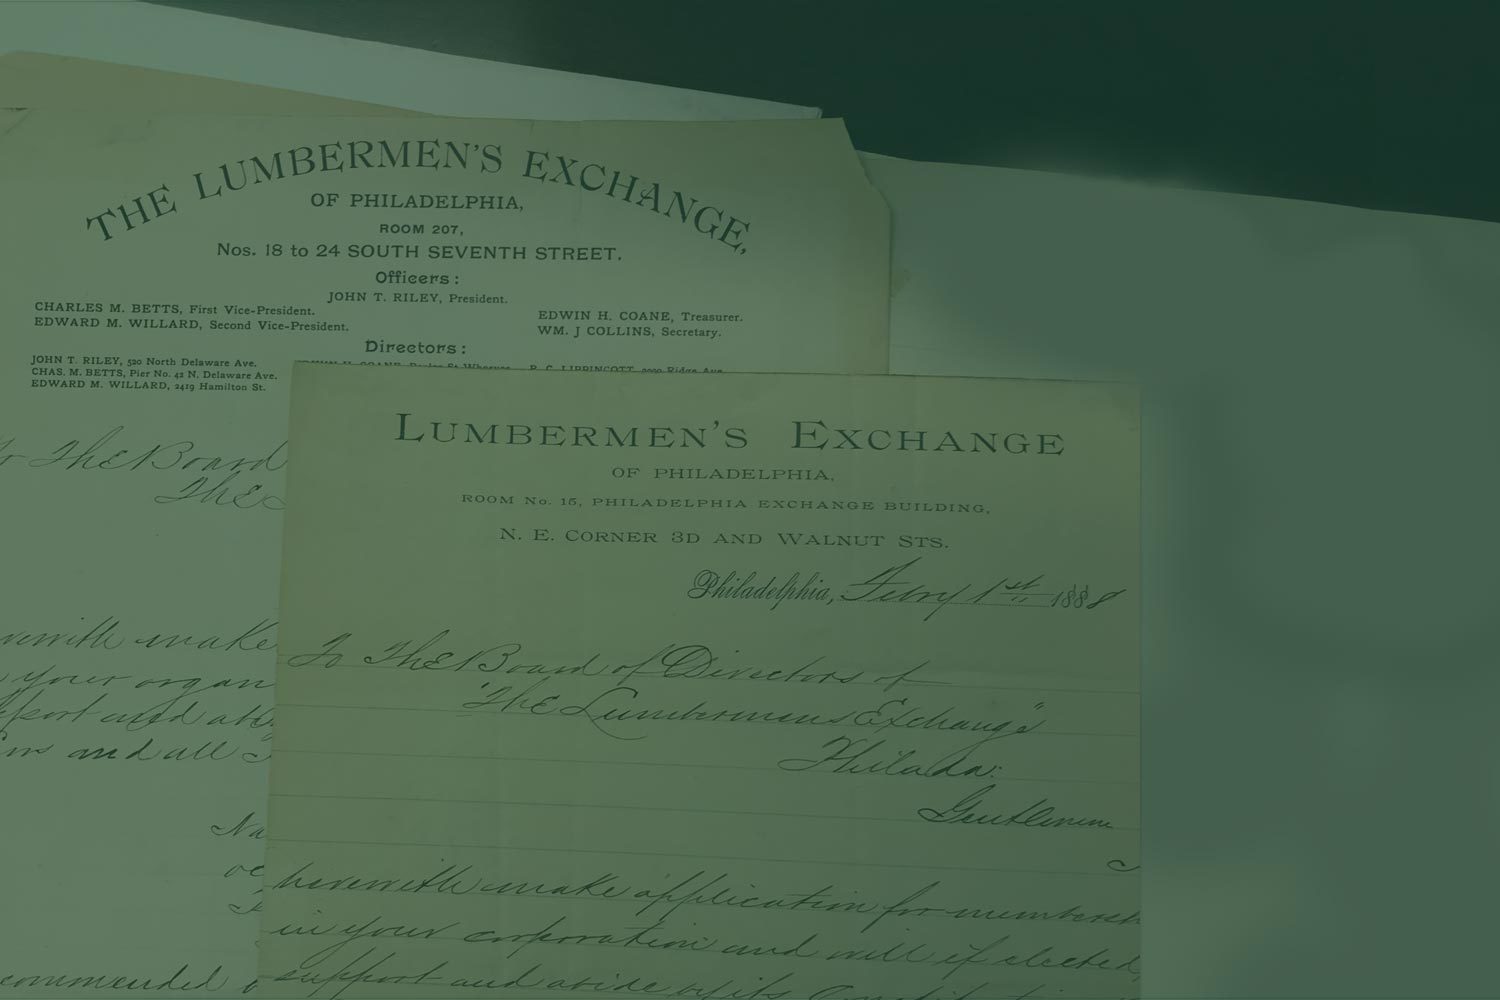 THE LUMBERMEN'S EXCHANGE,
OF PHILADELPHIA,
ROOM 207,
Nos. 18 to 24 SOUTH SEVENTH STREET.
Officers:
JOHN T. RILEY, President.
CHARLES M. BETTS, First Vice-President.
EDWARD M. WILLARD, Second Vice-President.
EDWIN H. COANE, Treasurer.
WM. J COLLINS, Secretary.
Directors:
JOHN T. RILEY, 520 North Delaware Ave.
CHAS. M. BETTS, Pier No. 42 N. Delaware Ave.
EDWARD M. WILLARD, 2419 Hamilton St.
EDWIN H. COANE, R. C. LIPPINCOTT, Ridge Ave.
The Board
The
herewith make
your organ
support and
and all
ommended
LUMBERMEN'S EXCHANGE
OF PHILADELPHIA,
ROOM No. 15, PHILADELPHIA EXCHANGE BUILDING,
N. E. CORNER 3D AND WALNUT STS.
Philadelphia, Febry 1st 1888
To The Board of Directors of
"The Lumbermens Exchange"
Philada:
Gentlemen
herewith make application for membersh
in your corporation and will if elected
support and abide by its